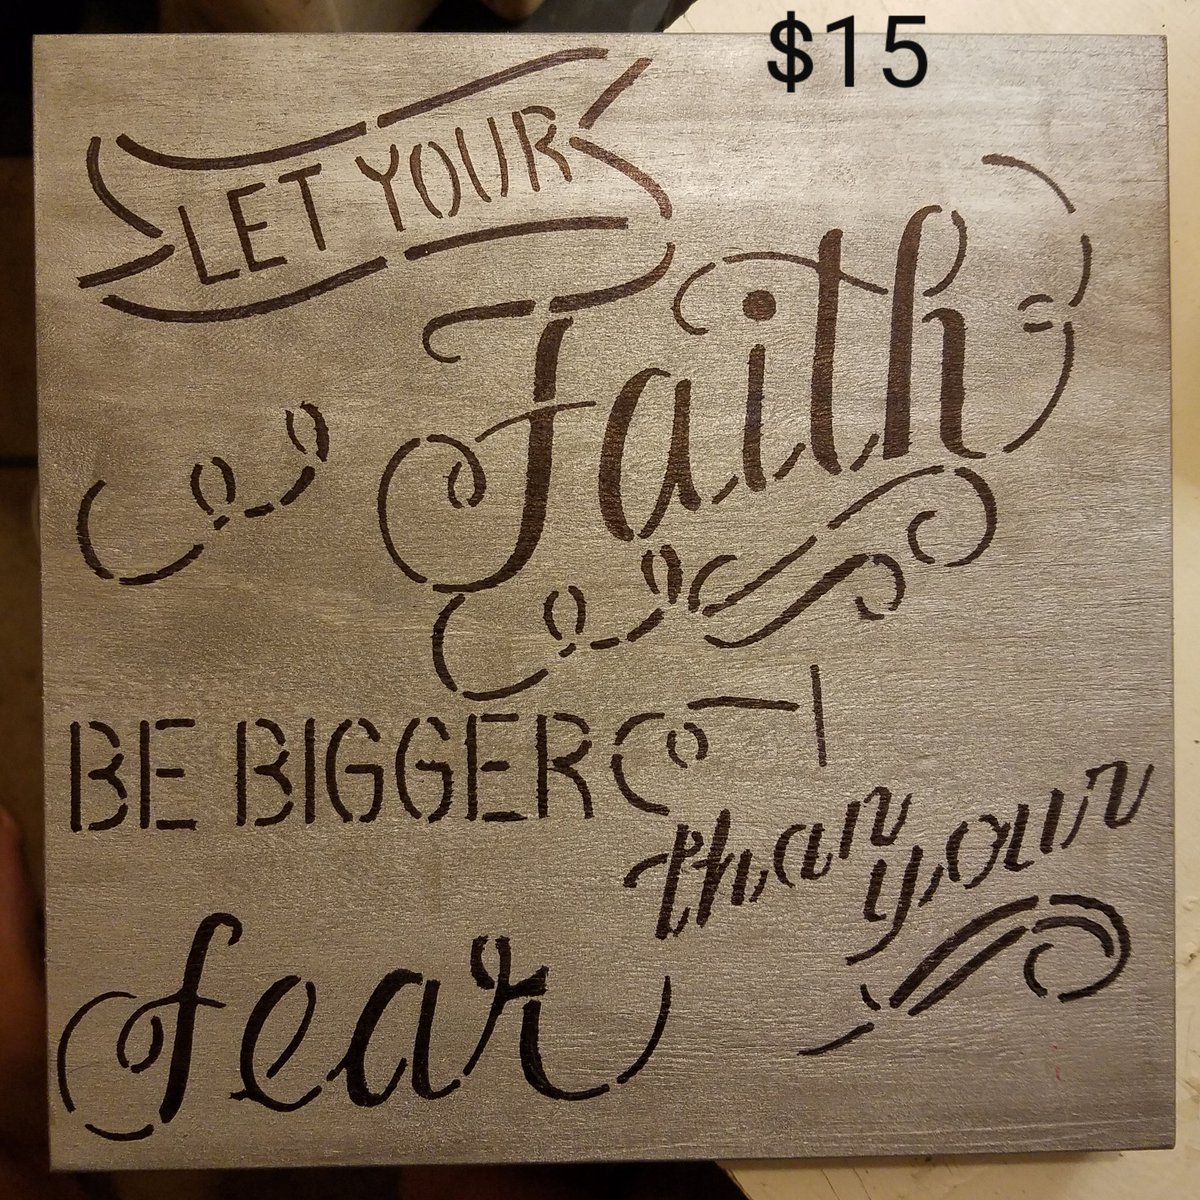 $15
LET YOUR
Faith
BE BIGGER
than your
fear